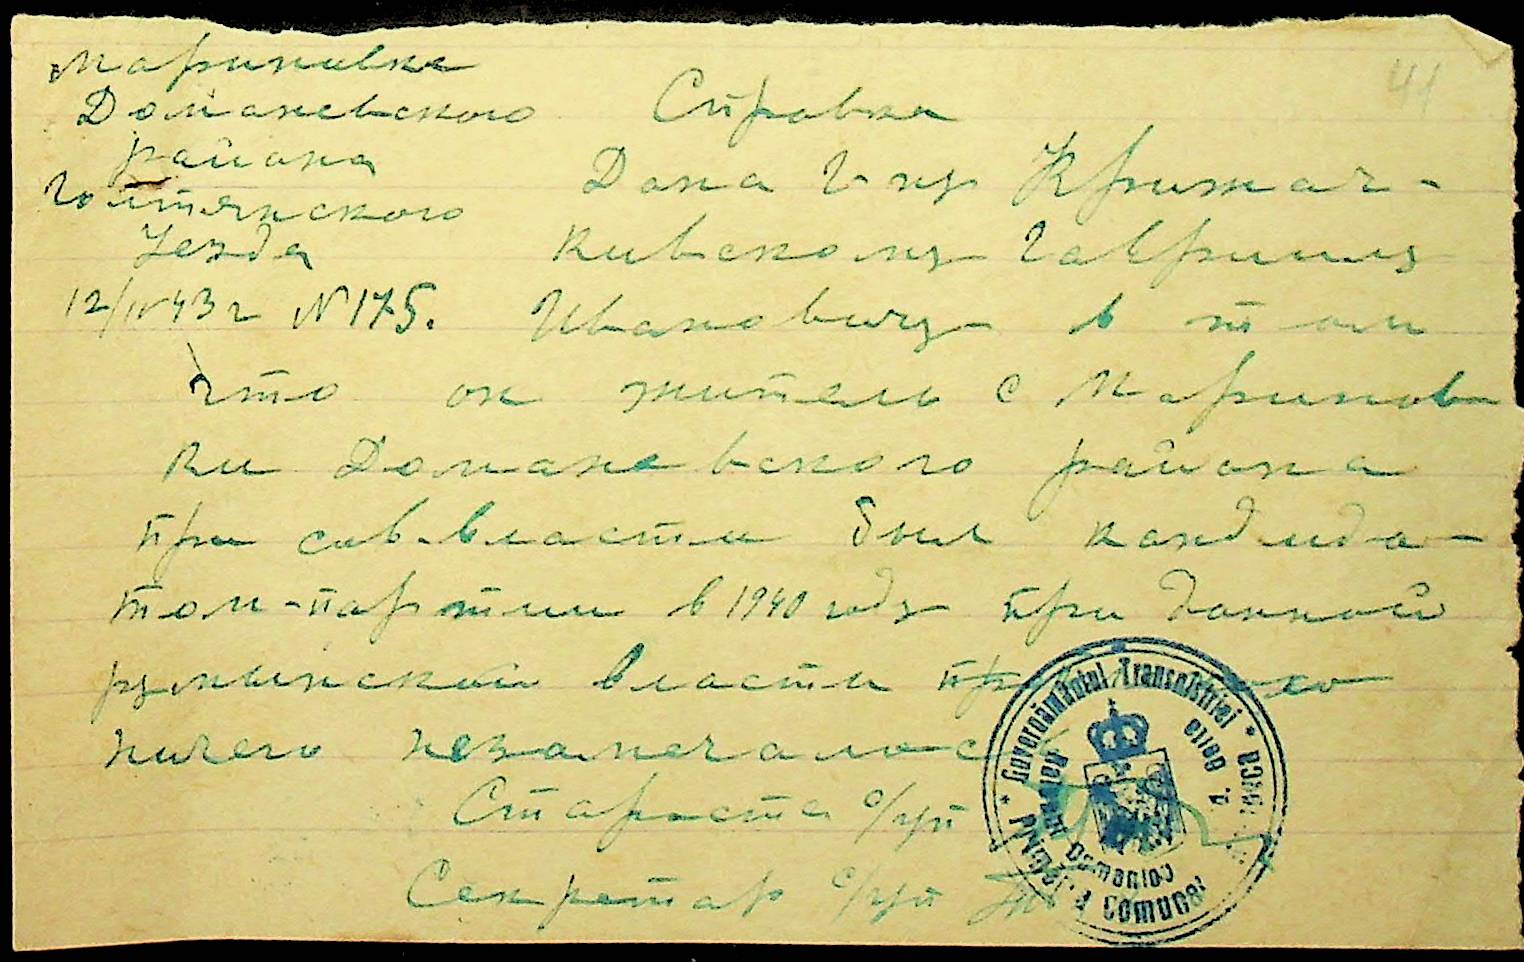 Мариновка
Доманевского
района
Голтянского
Уезда
12/IV 43 г N 175.
41
Справка
Дана Г-ну Крижач-
кивскому Гаврилу
Ивановичу в том
что он житель с Маринов
ки Доманевского района
при сов.власти был кандида-
том-партии в 1940 году при данной
румынской власти
ничего незамечалос
Староста с/уп
Секретар с/уп
Guvernământul Transnistriei
Primăria Comunei
Raionul Domaniov